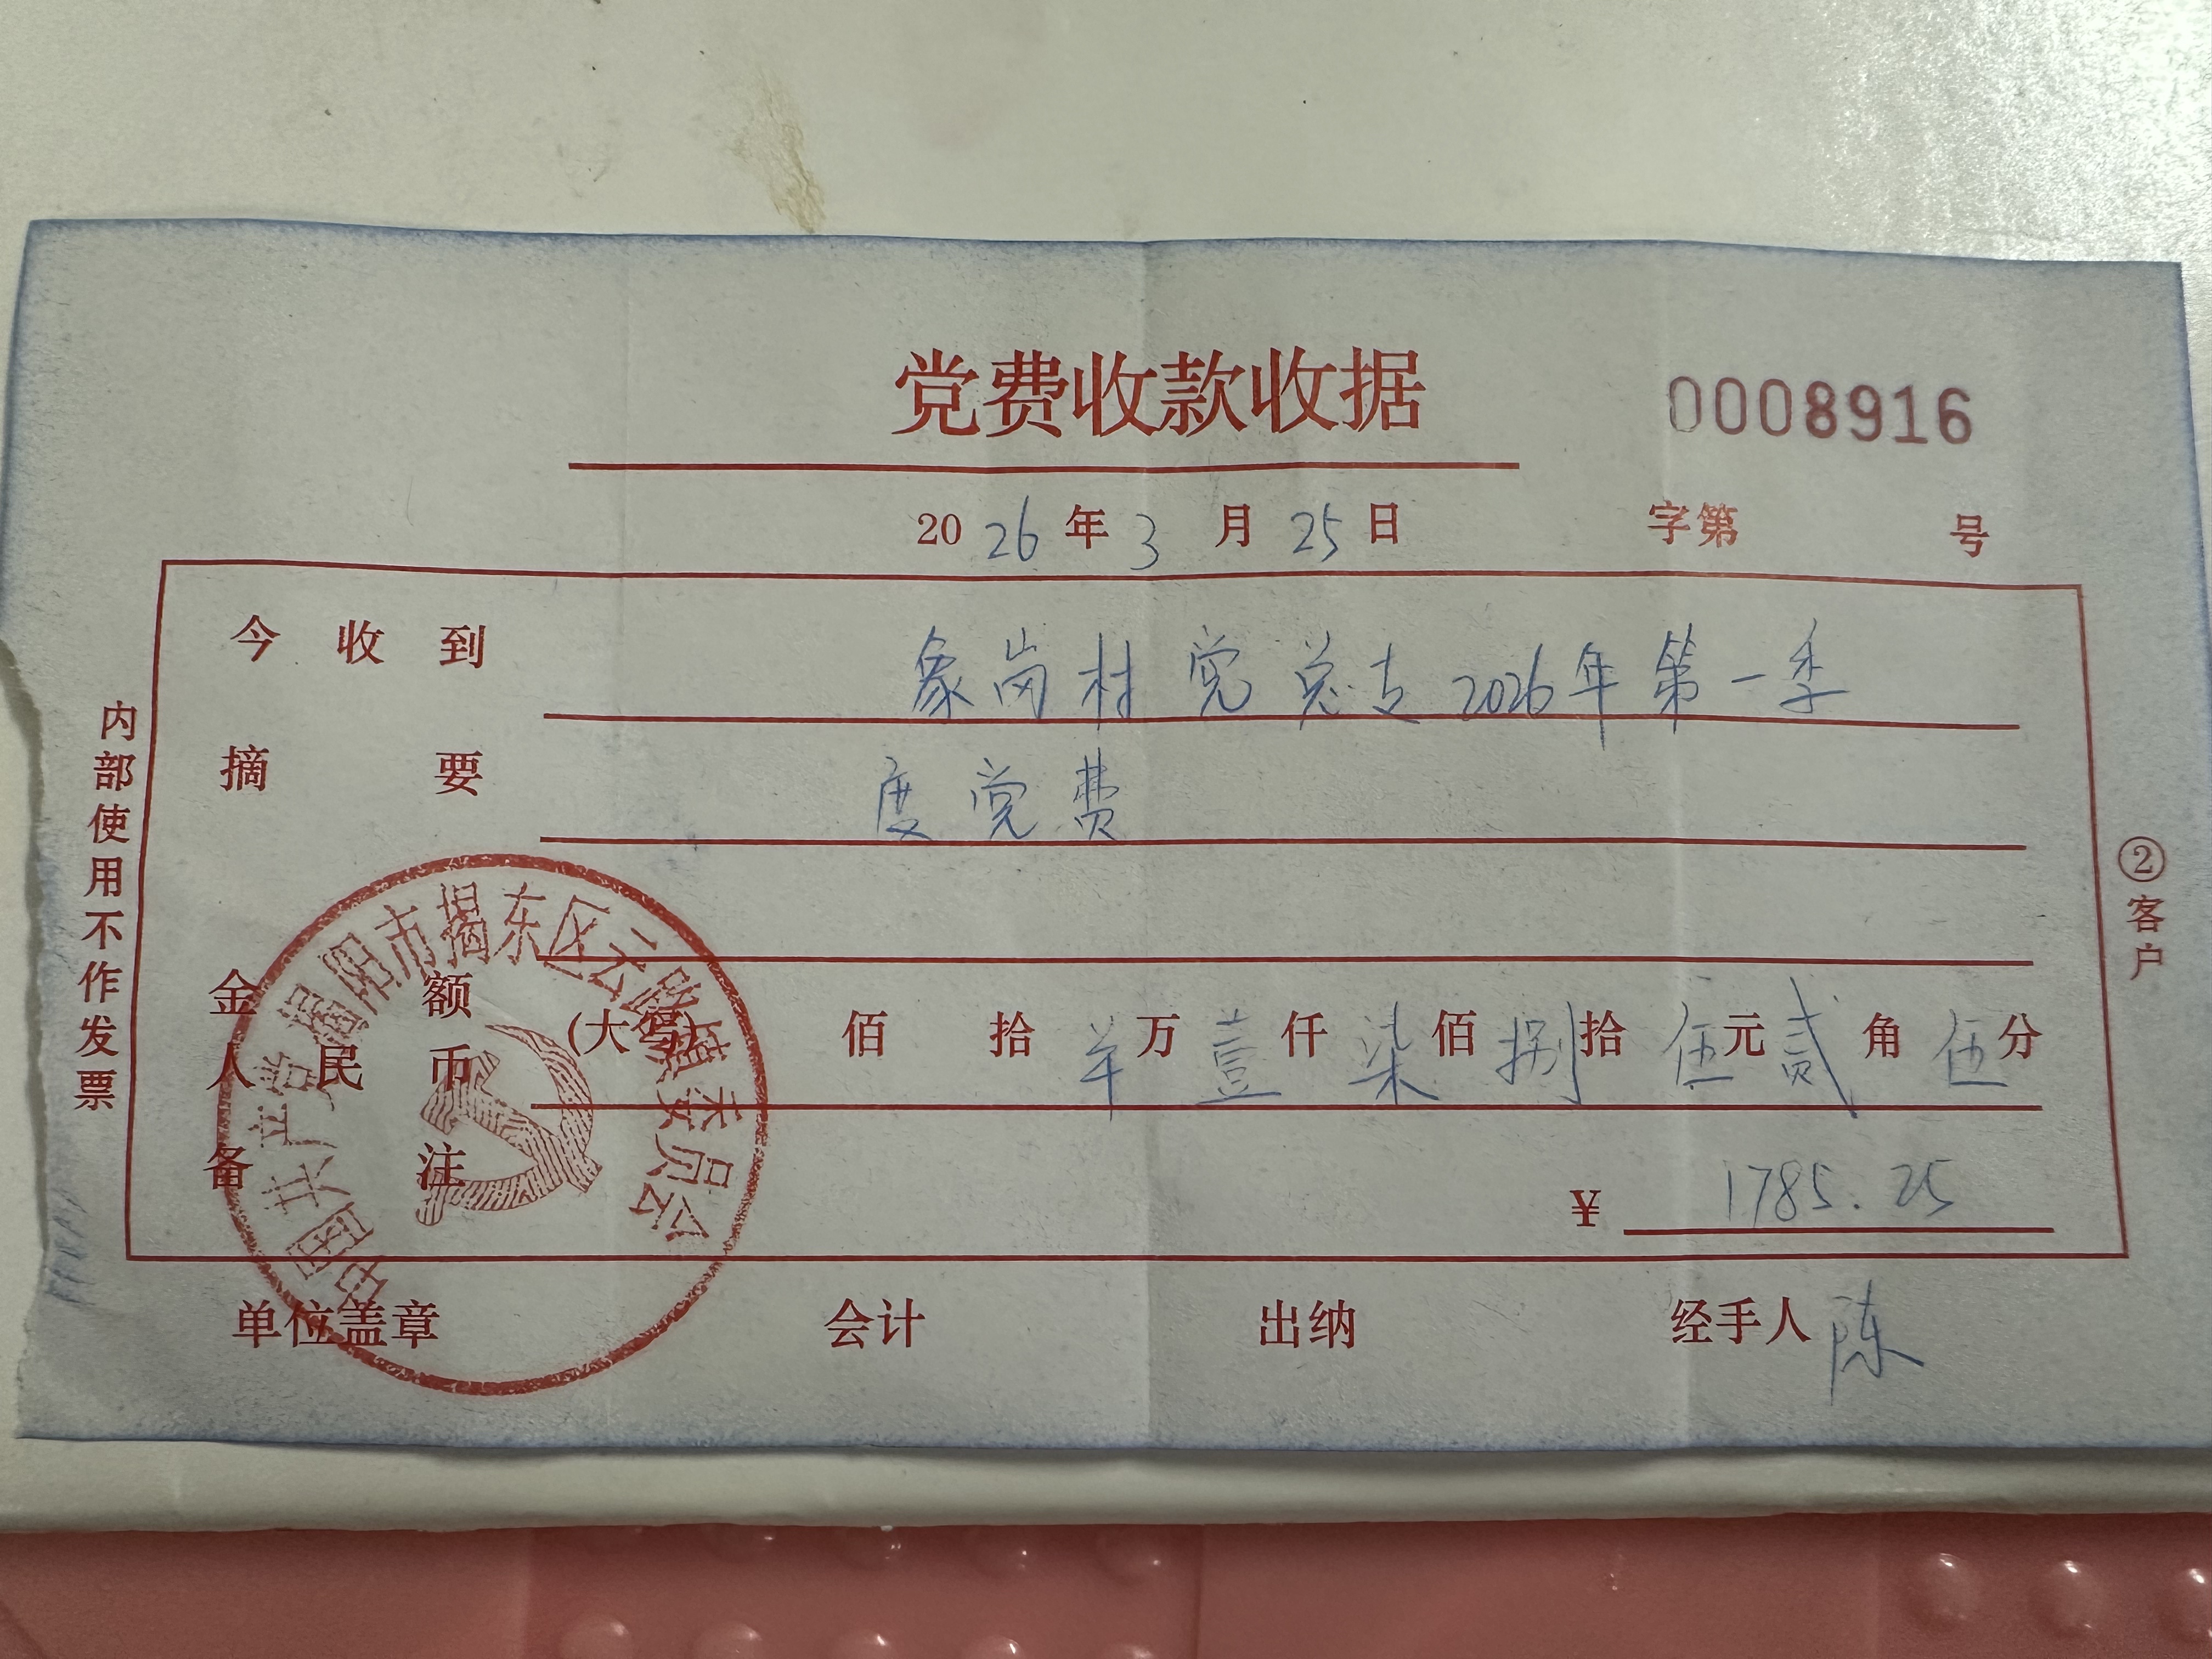 党费收款收据
0008916
2026年3月25日
字第 号
今收到 象岗村党总支2026年第一季
摘要 度党费
金额
人民币
(大写) 佰 拾 羊万壹仟柒佰捌拾伍元贰角伍分
备注
¥ 1785.25
单位盖章 会计 出纳 经手人 陈
内部使用不作发票
②客户
中国共产党揭阳市揭东区云路镇委员会